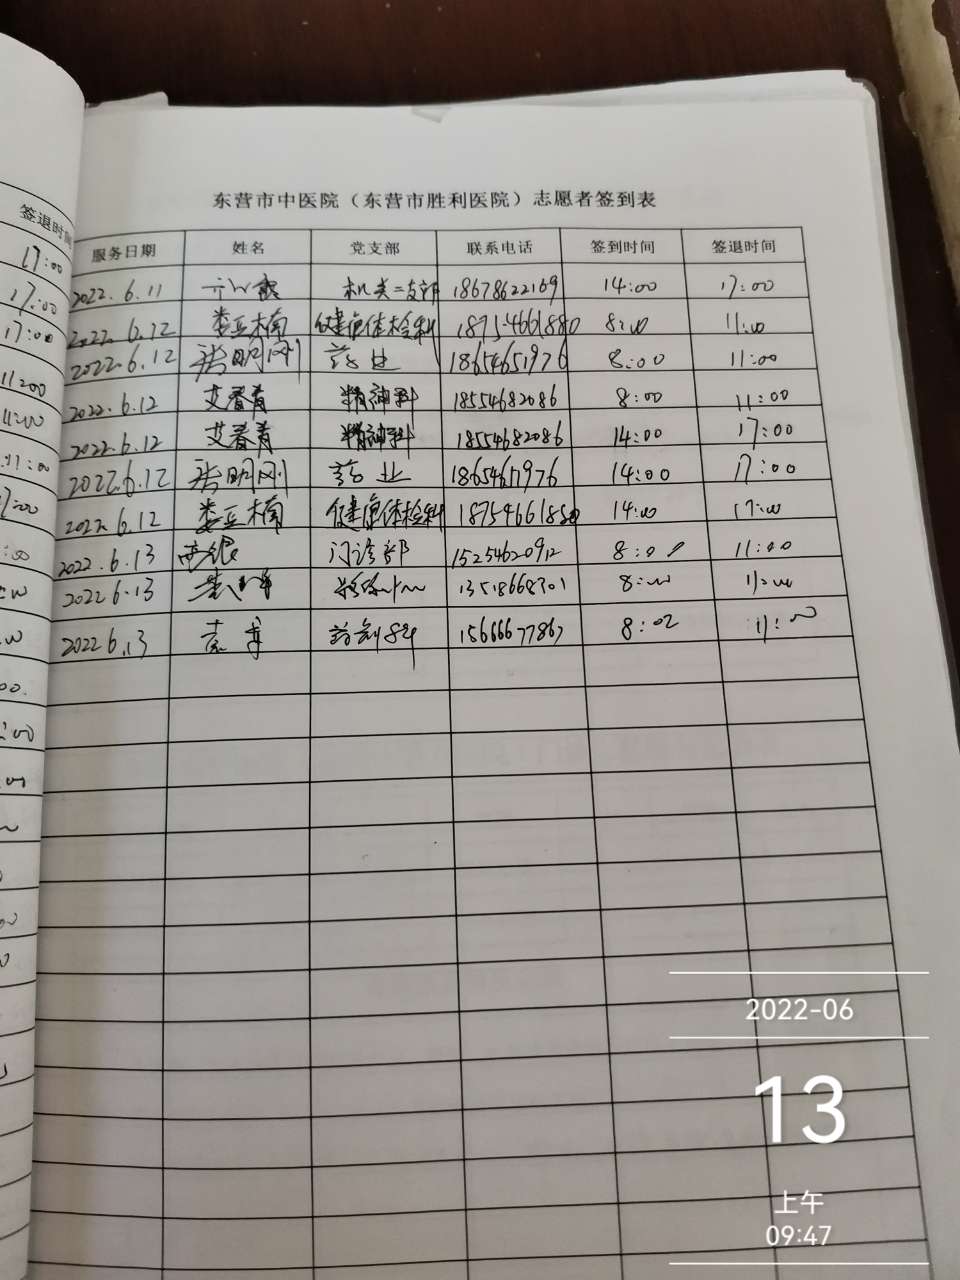 签退时间
17:00
17:00
17:00
11:00
11:00
11:00
17:00
东营市中医院（东营市胜利医院）志愿者签到表
服务日期 姓名 党支部 联系电话 签到时间 签退时间
2022.6.11 机关二支部 18678622169 14:00 17:00
2022.6.12 娄亚楠 健康体检科 18754661880 8:00 11:00
2022.6.12 张明刚 药业 18654651976 8:00 11:00
2022.6.12 艾春青 精神科 18554682086 8:00 11:00
2022.6.12 艾春青 精神科 18554682086 14:00 17:00
2022.6.12 张明刚 药业 18654651976 14:00 17:00
2022.6.12 娄亚楠 健康体检科 18754661880 14:00 17:00
2022.6.13 门诊部 15254620912 8:01 11:00
2022.6.13 13518668701 8:00 11:00
2022.6.13 药剂科 15666677867 8:02 11:00
2022-06
13
上午
09:47